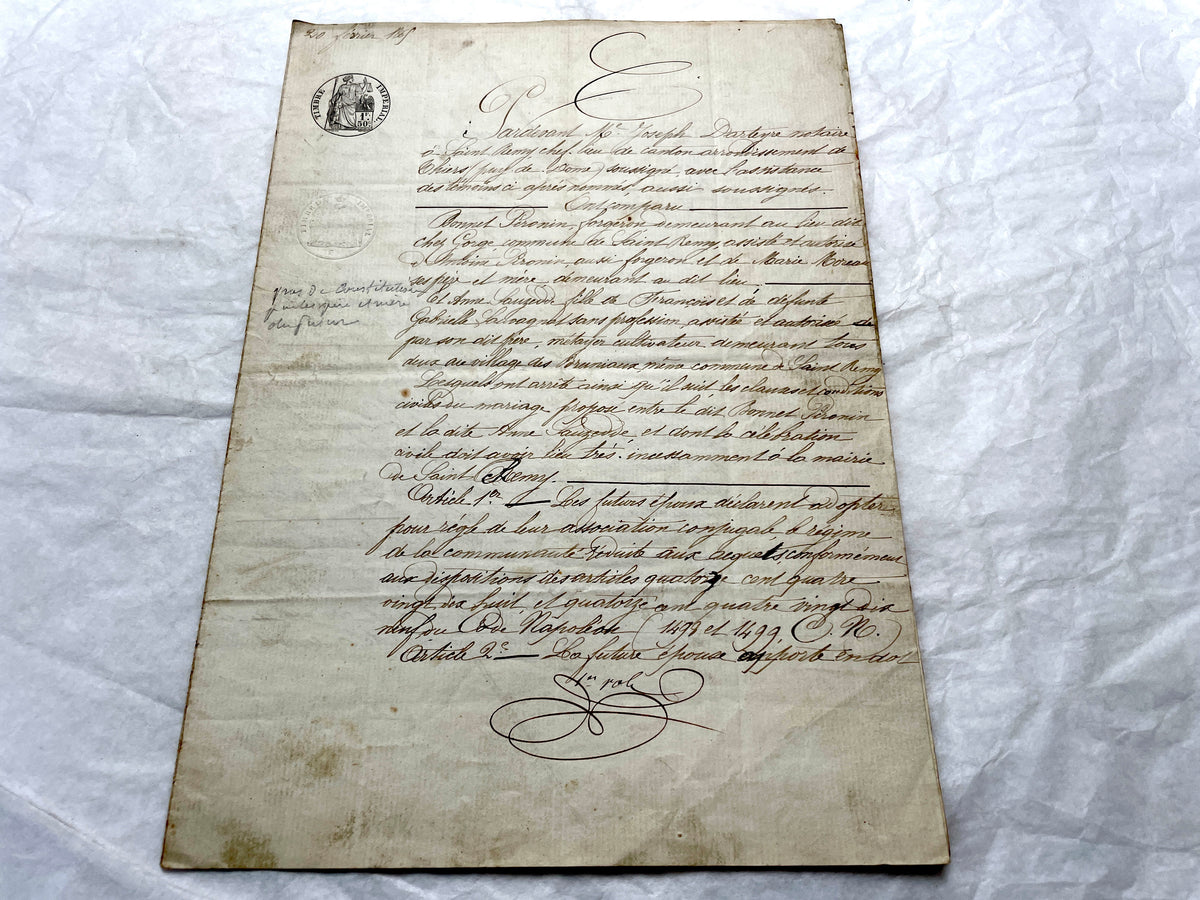 20 février 186
TIMBRE IMPERIAL
1F 50C
Pardevant Me Joseph Darteyre notaire
à Saint Remy chef lieu de canton arrondissement de
Thiers (puy de Dome) soussigné, avec l'assistance
des témoins ci après nommés, aussi soussignés.
Ont comparu
Bonnet Bronin, forgeron demeurant au lieu dit
chez Gorge commune de Saint Remy, assisté et autorisé
d'Antoine Bronin aussi forgeron et de Marie Moreau
ses père et mère, demeurant au dit lieu,
pas de constitution
par les père et mère
du futur
Et Anne Sauzedde fille de François et de défunte
Gabrielle sans profession, assistée et autorisée
par son dit père, métayer cultivateur, demeurant tous
deux au village des Bruniaux même commune de Saint Remy
Lesquels ont arrêté ainsi qu'il suit, les clauses et conditions
civiles du mariage proposé entre le dit Bonnet Bronin
et la dite Anne Sauzedde, et dont la célébration
civile doit avoir lieu très incessamment à la mairie
de Saint Remy.
Article 1er Les futurs époux déclarent adopter
pour règle de leur association conjugale le régime
de la communauté réduite aux acquets, conformément
aux dispositions des articles quatorze cent quatre
vingt dix huit, et quatorze cent quatre vingt dix
neuf du Code Napoléon (1498 et 1499 C. N.)
Article 2e La future épouse apporte en dot
1er role